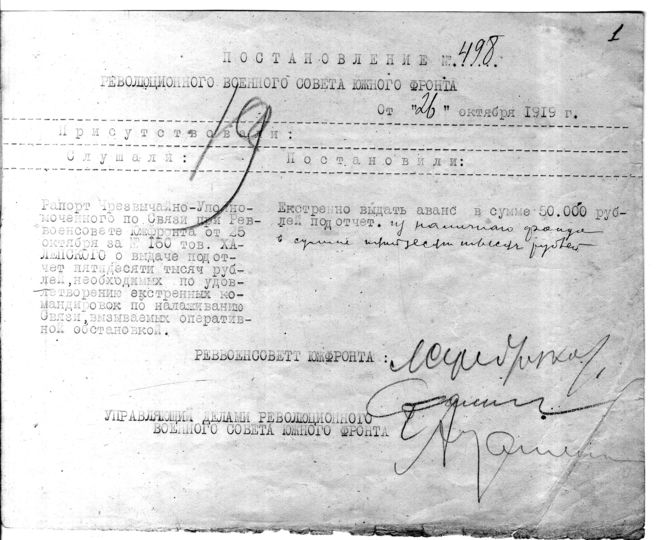 1
ПОСТАНОВЛЕНИЕ №. 498.
РЕВОЛЮЦИОННОГО ВОЕННОГО СОВЕТА ЮЖНОГО ФРОНТА
От "26" октября 1919 г.
19
Присутствовали:
Слушали: Постановили:
Рапорт Чрезвычайно-Уполно-
моченного по Связи при Рев-
военсовете Южфронта от 25
октября за № 150 тов. ХА-
ЛЕПСКОГО о выдаче подот-
чет пятидесяти тысяч руб-
лей,необходимых по удов-
летворению екстренных ко-
мандировок по налаживанию
Связи,вызываемых оператив-
ной обстановкой.
Екстренно выдать аванс в сумме 50.000 руб-
лей подотчет. из наличного фонда
в сумме пятьдесят тысяч рублей
РЕВВОЕНСОВЕТТ ЮЖФРОНТА :
УПРАВЛЯЮЩИЙ ДЕЛАМИ РЕВОЛЮЦИОННОГО
ВОЕННОГО СОВЕТА ЮЖНОГО ФРОНТА